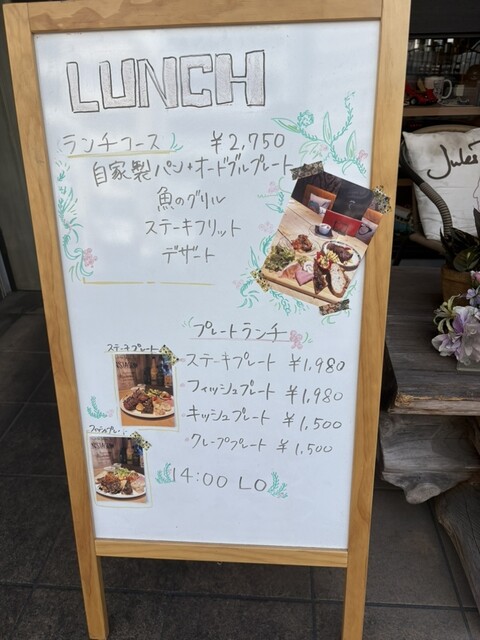 LUNCH
ランチコース ¥2,750
自家製パン+オードブルプレート
魚のグリル
ステーキフリット
デザート
プレートランチ
ステーキプレート ¥1,980
フィッシュプレート ¥1,980
キッシュプレート ¥1,500
クレーププレート ¥1,500
14:00 LO
ステーキプレート
Jules